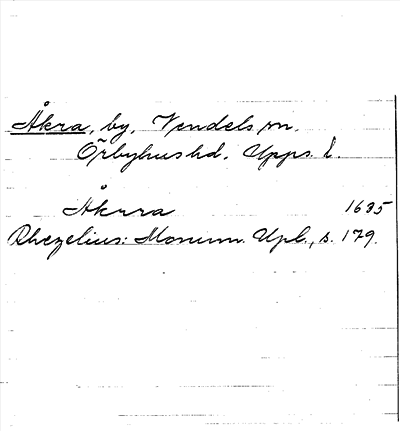 Åkra, by, Vendels sn.
Örbyhus hd. Upps. l.
Åkrra 1635
Rhezelius: Monum. Upl., s. 179.